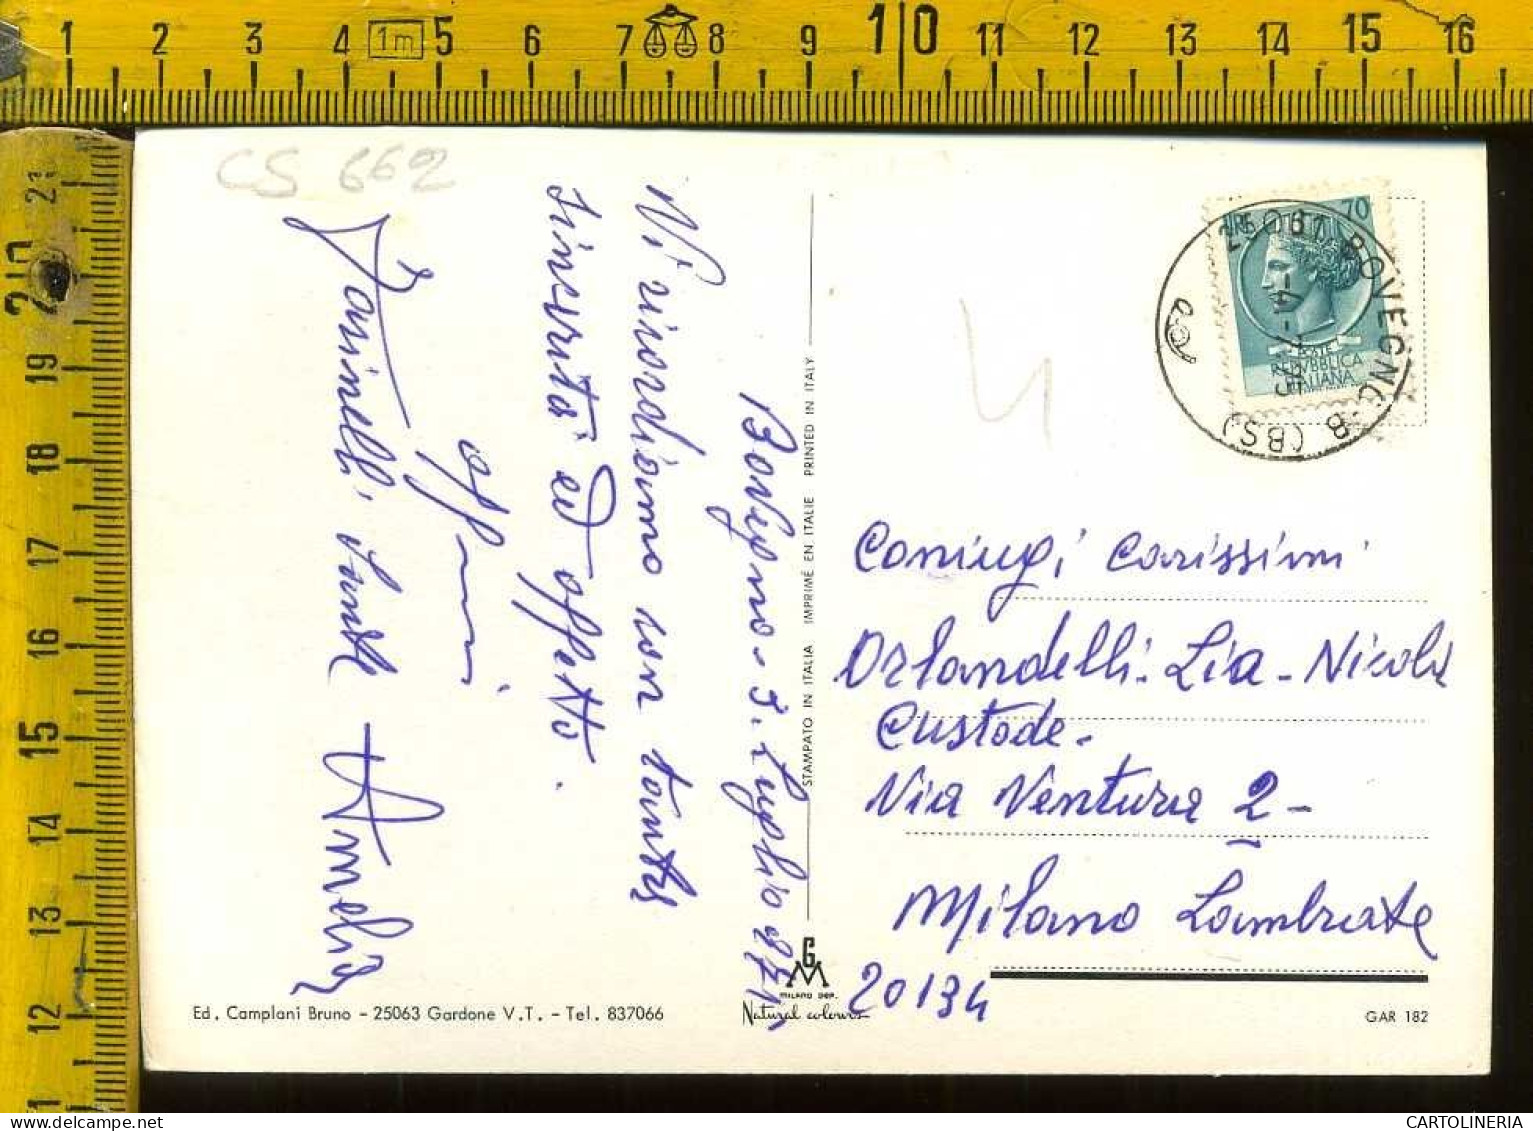 1 2 3 4 1m 5 6 7 8 9 10 11 12 13 14 15 16
21
20
19
18
17
16
15
14
13
12
CS 662
Bovegno - 3. Luglio
Vi ricordiamo con tanta
sincerità ed affetto.
Amelia
STAMPATO IN ITALIA IMPRIMÉ EN ITALIE PRINTED IN ITALY
LIRE 70
POSTE
REPVBBLICA
ITALIANA
25061 BOVEGNO - B (BS)
4
Coniugi carissimi
Orlandelli. Lia - Nicola
Custode -
Via Ventura 2 -
Milano Lambrate
20134
Ed. Camplani Bruno - 25063 Gardone V.T. - Tel. 837066
MILANO DEP.
Natural colours
GAR 182
CARTOLINERIA